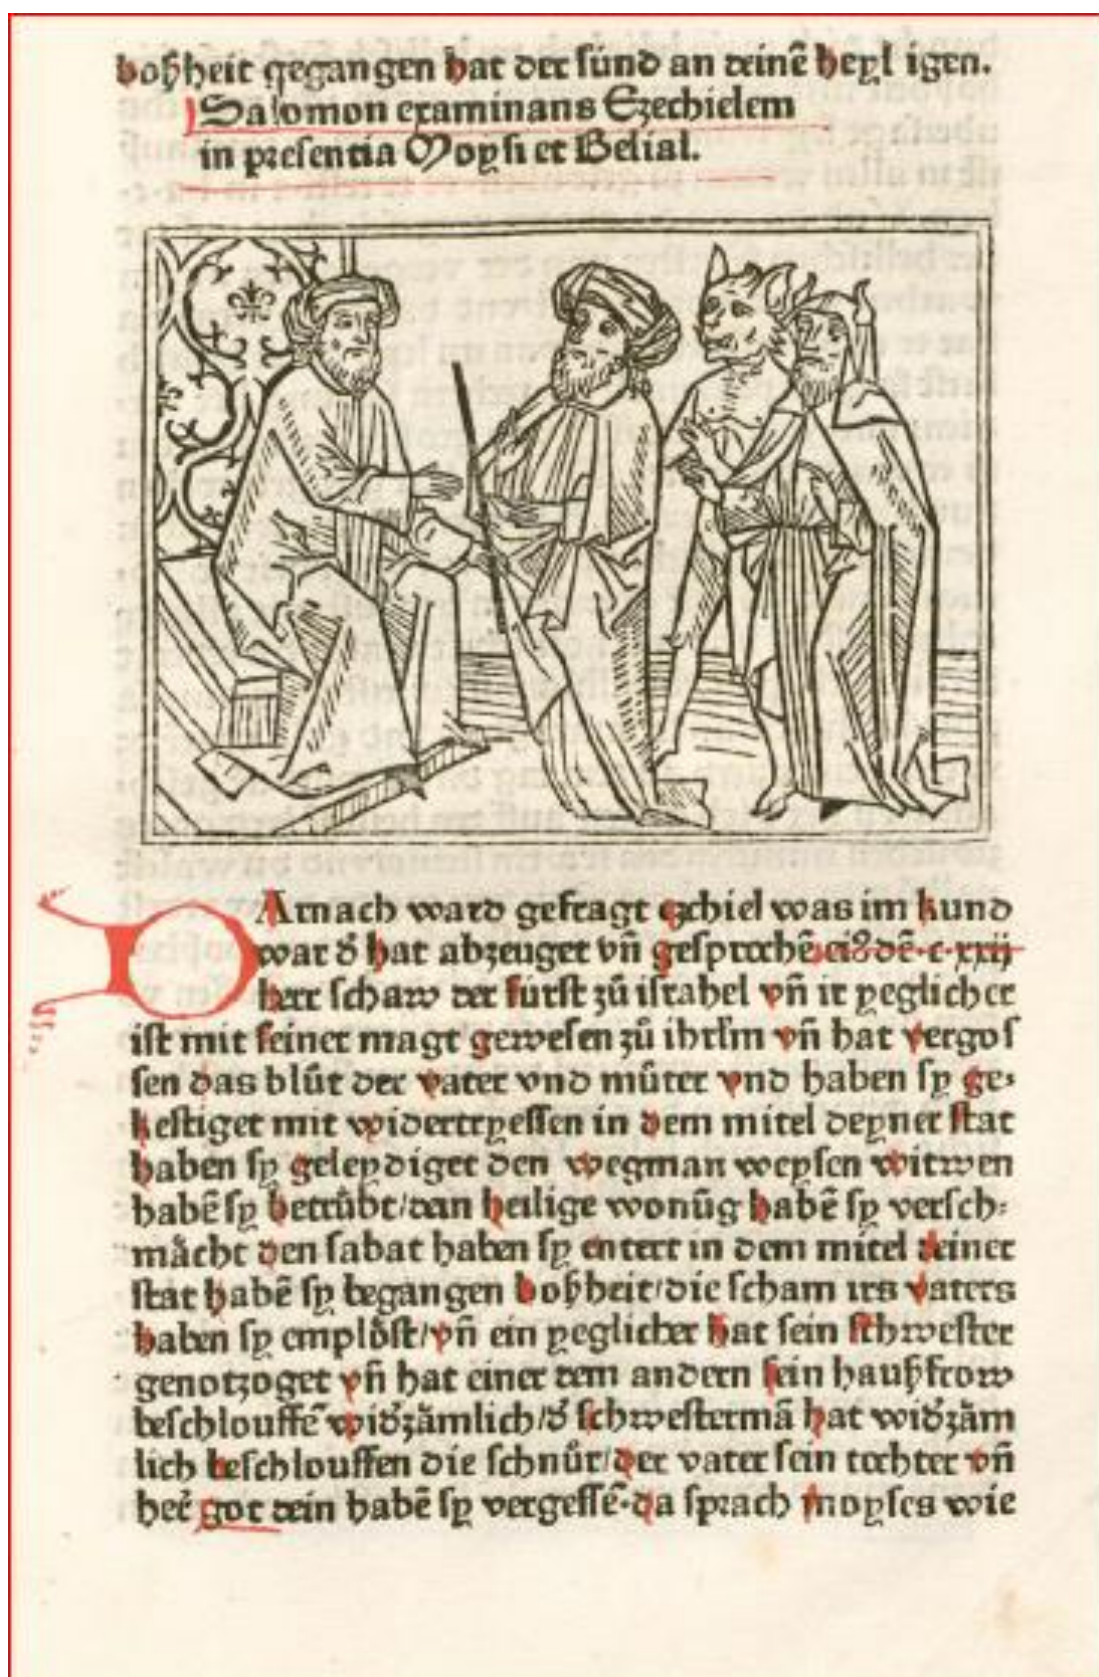 boßheit gegangen hat der sünd an deinē heyligen.
Salomon examinans Ezechielem
in presentia Moysi et Belial.
DArnach ward gefragt ezchiel was im kund
war d̕ hat abzeuget vñ gesprochē ei9dē·c·xxij
herr schaw der fürst zů israhel vñ ir yeglicher
ist mit seiner magt gewesen zů ihrl̄m vñ hat vergos
sen das blůt der vater vnd můter vnd haben sy ge-
kestiget mit widertryessen in dem mitel deyner stat
haben sy geleydiget den wegman weysen witwen
habē sy betrůbt/dein heilige wonūg habē sy versch-
mácht den sabat haben sy entert in dem mitel deiner
stat habē sy begangen boßheit/die scham irs vaters
haben sy emplöst/vñ ein yeglicher hat sein schwester
genotzoget vñ hat einer dem andern sein haußfrow
beschlouffē wid̕zämlich/d̕ schwestermā hat wid̕zäm
lich beschlouffen die schnůr/der vater sein tochter vñ
her̕ got dein habē sy vergessē·da sprach moyses wie